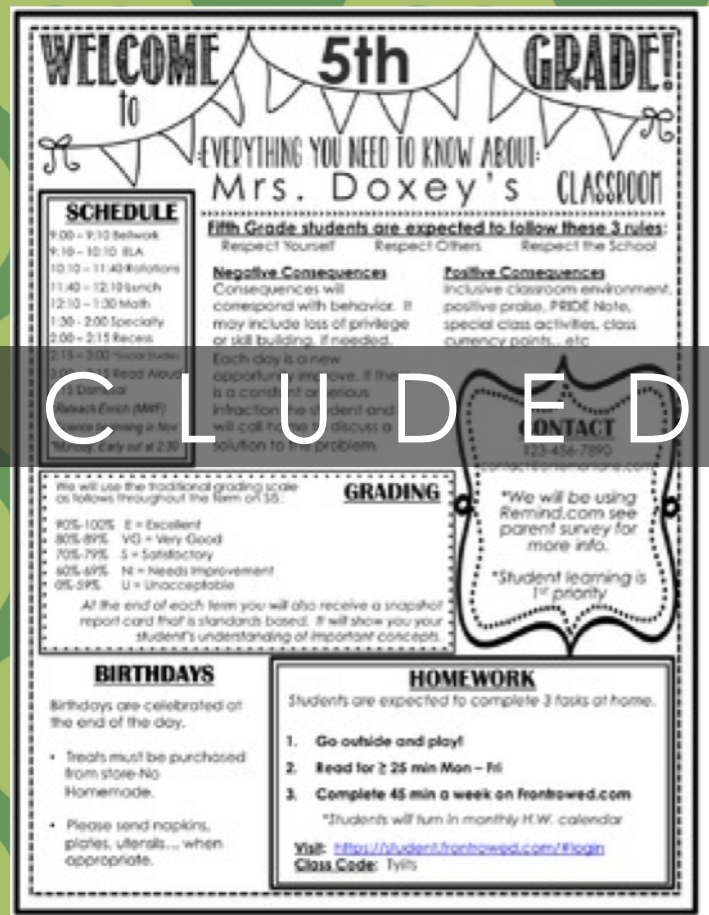 WELCOME 5th GRADE!
to
EVERYTHING YOU NEED TO KNOW ABOUT:
Mrs. Doxey's CLASSROOM
SCHEDULE
9:00 – 9:10 Bellwork
9:10 – 10:10 ELA
10:10 – 11:40 Rotations
11:40 – 12:10 Lunch
12:10 – 1:30 Math
1:30 - 2:00 Specialty
2:00 – 2:15 Recess
2:15 – 3:00 *Social Studies
Read Aloud
Reteach Enrich (MWF)
*Monday: Early out at 2:30
Fifth Grade students are expected to follow these 3 rules:
Respect Yourself Respect Others Respect the School
Negative Consequences
Consequences will
correspond with behavior. It
may include loss of privilege
or skill building, if needed.
Each day is a new
opportunity improve. If there
is a constant or serious
infraction the student and
will call home to discuss a
solution to the problem.
Positive Consequences
Inclusive classroom environment,
positive praise, PRIDE Note,
special class activities, class
currency points...etc
CLUDED
CONTACT
123-456-7890
*We will be using
Remind.com see
parent survey for
more info.
*Student learning is
1st priority
GRADING
We will use the traditional grading scale
as follows throughout the term on SIS:
90%-100% E = Excellent
80%-89% VG = Very Good
70%-79% S = Satisfactory
60%-69% NI = Needs Improvement
0%-59% U = Unacceptable
At the end of each term you will also receive a snapshot
report card that is standards based. It will show you your
student's understanding of important concepts.
BIRTHDAYS
Birthdays are celebrated at
the end of the day.
• Treats must be purchased
from store-No
Homemade.
• Please send napkins,
plates, utensils... when
appropriate.
HOMEWORK
Students are expected to complete 3 tasks at home.
1. Go outside and play!
2. Read for ≥ 25 min Mon – Fri
3. Complete 45 min a week on Frontrowed.com
*Students will turn in monthly H.W. calendar
Visit: https://student.frontrowed.com/#login
Class Code: